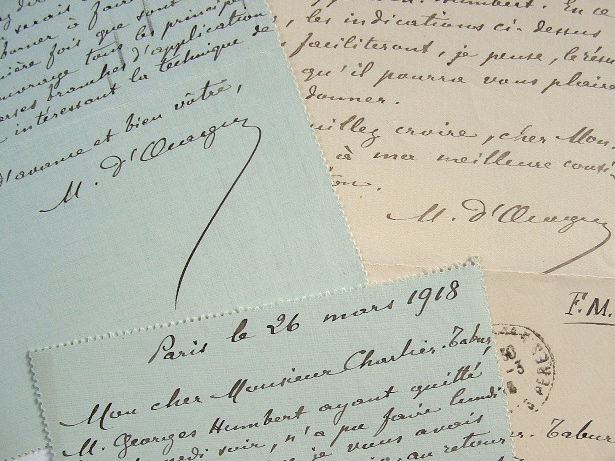 serais
borner à faire
ière fois que sont
ouvrage tous les princip
erses branches d'application
intéressant la technique de
d'avance et bien vôtre,
M. d'Ocagne
Humbert. En ce
les indications ci-dessus
faciliteront, je pense, le résu
qu'il pourra vous plaire
donner.
uillez croire, cher Mon
à ma meilleure consi
on.
M. d'Ocagne
F.M.
Paris le 26 mars 1918
Mon cher Monsieur Charlier-Tabur,
M. Georges Humbert ayant quitté
medi soir, n'a pu faire lundi
je vous avais
au retour
r. Tabur